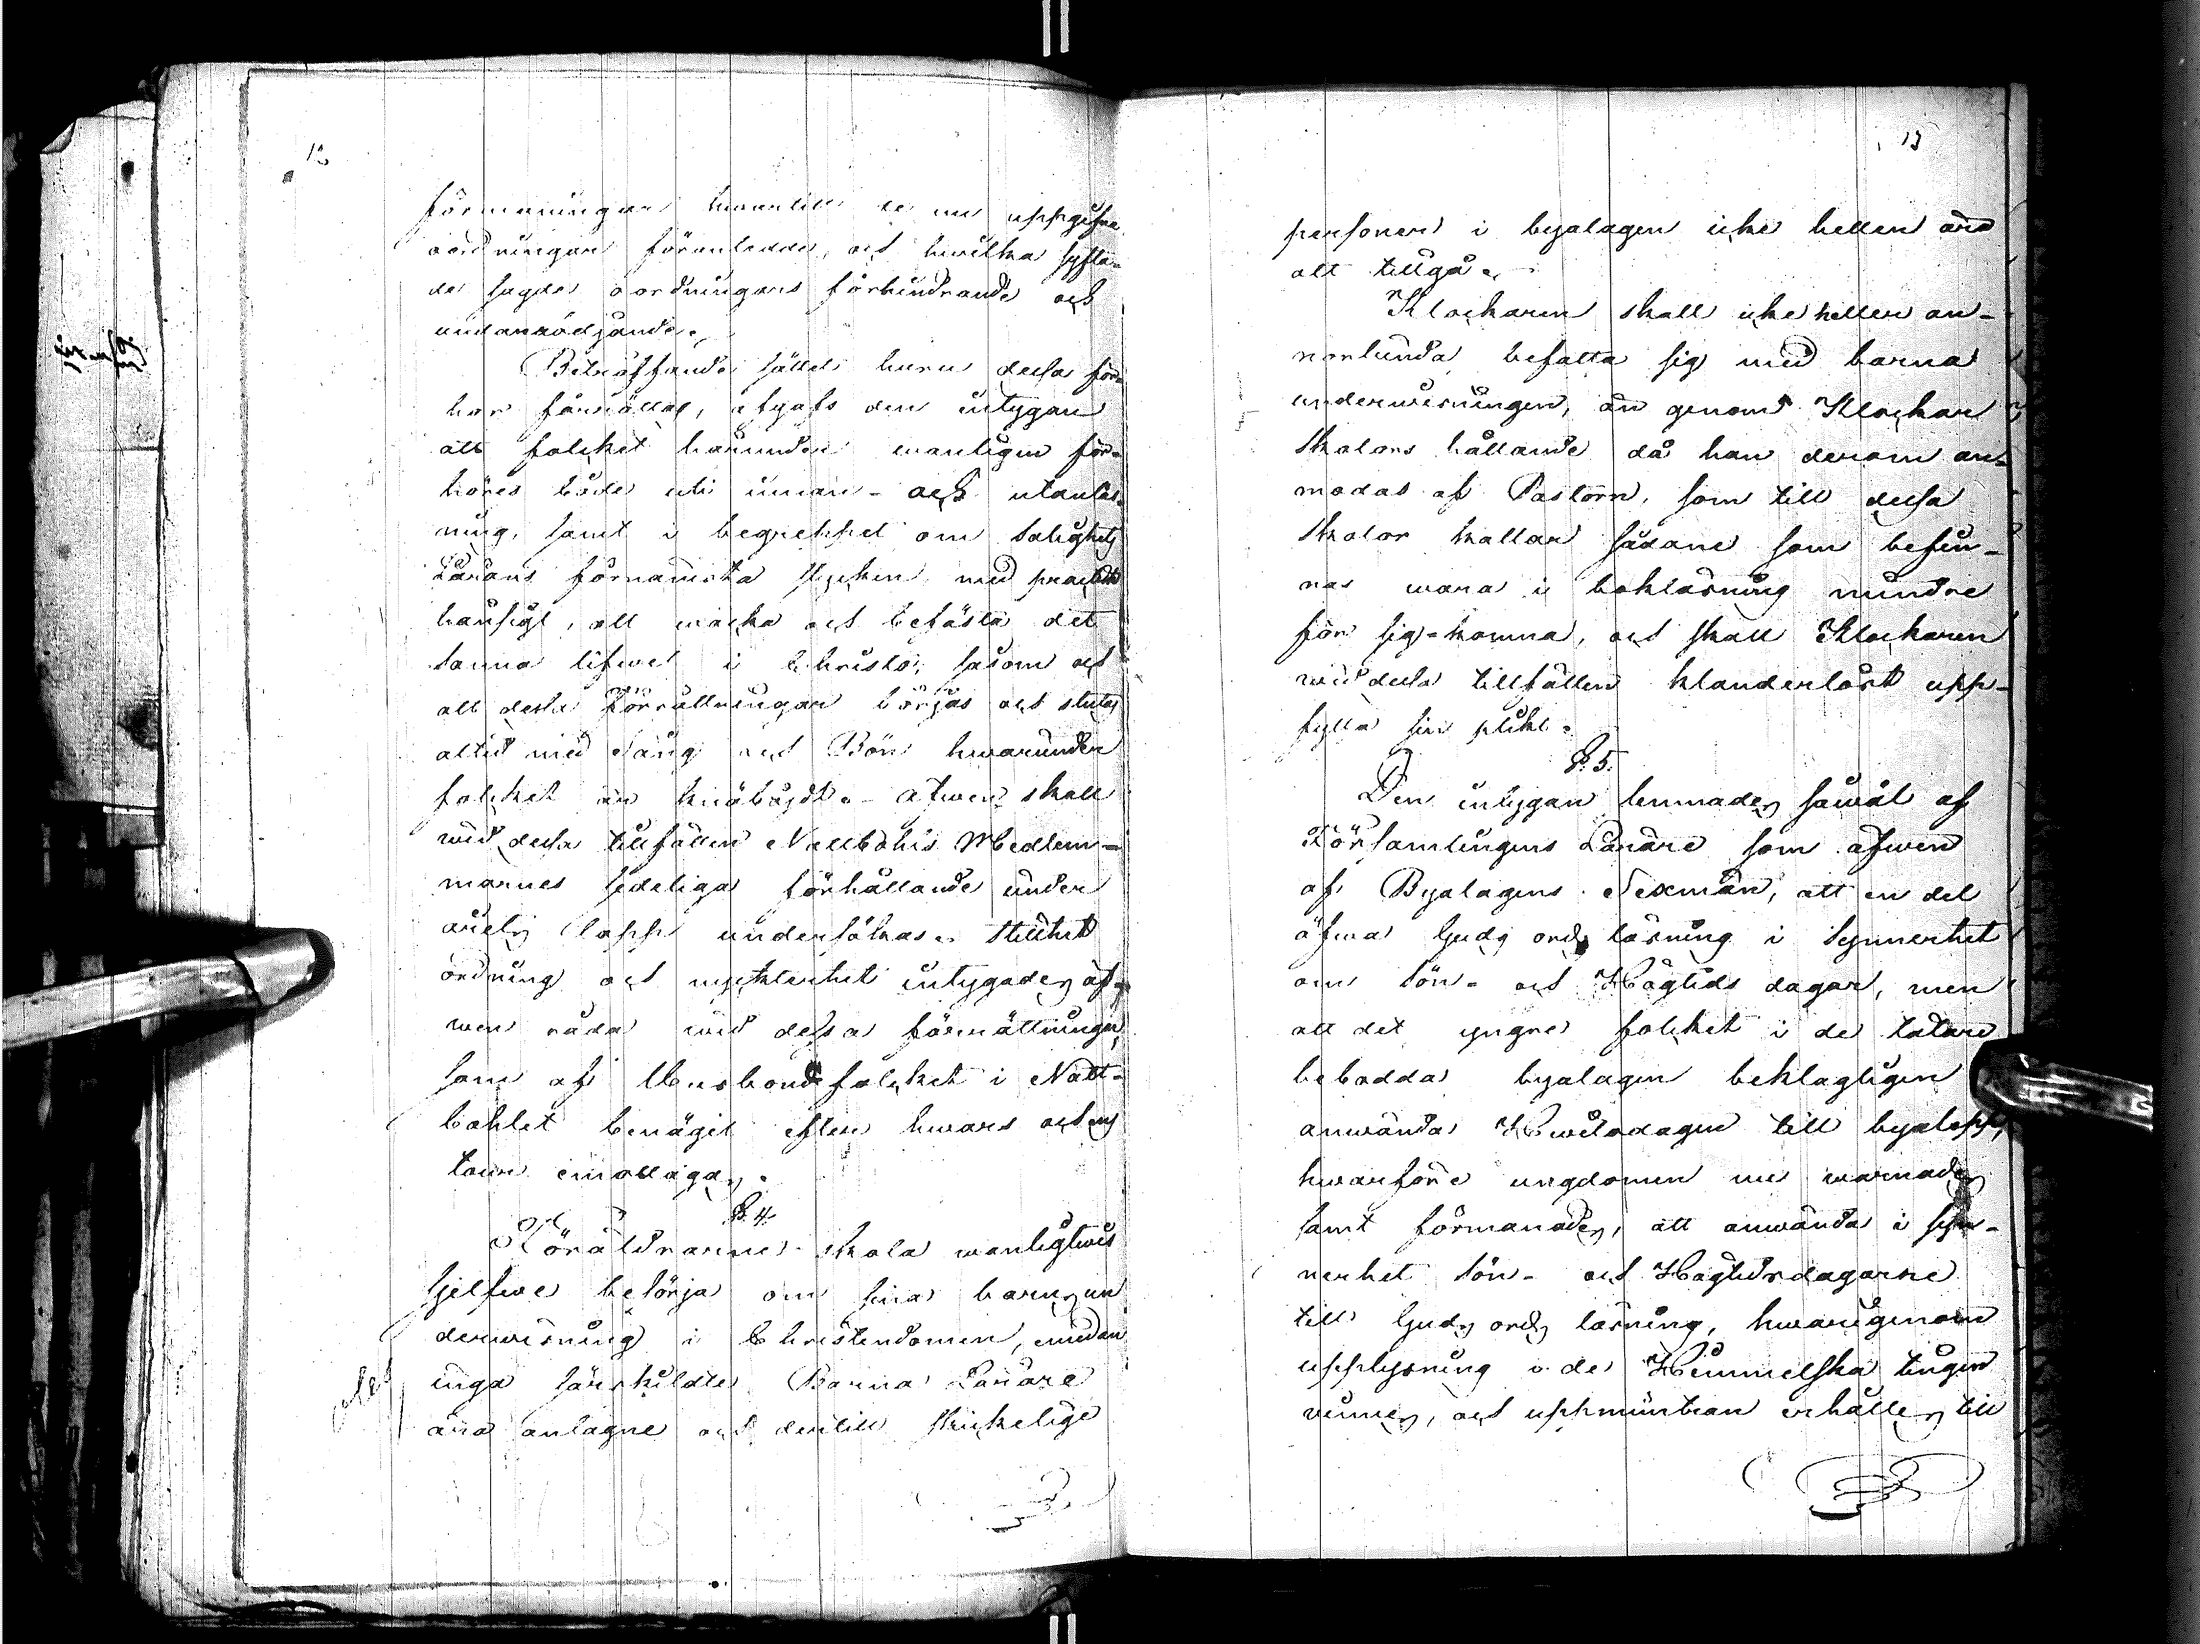 12
förmaningar hwartill de nu uppgifne
oordningar föranledde, och hwilka syfta-
de sagde oordningars förhindrande och
undanrödjande.
Beträffande sättet huru dessa för-
hör förrättas, afgafs den intygan
att folcket härunder wanligen för-
höres både uti innan- och utanläs-
ning, samt i begreppet om Salighets
Lärans förnämsta stycken med
hänsigt, att wäcka och befästa det
sanna lifwet i Christo; såsom och
att desse Förrättningar börjas och slutas
altid med Sång och Bön hwarunder
folcket är knäböjdt. Äfwen skall
wid dessa tillfällen Nattbohls Medlem-
marnes sedeliga förhållande under
årets lopp undersökas. Stillhet
ordning och nyckterhet intygades äf-
wen råda wid dessa förrättningar,
som af Husbondefolcket i Natt-
bohlet benäget efter hwars och ens
tour emottagas.
§. 4.
Föräldrarne skola wanligtwis
sjelfwe besörja om sina barns un
derwisning i Christendomen, emedan
inga särskildte Barna Lärare
äro antagne och dertill skickelige
13
personer i byalagen icke heller äro
att tillgå.
Klockaren skall icke heller an-
norlunda befatta sig med barna
underwisningen, än genom Klockare
Skolors hållande då han derom an-
modas af Pastorn, som till dessa
Skolor kallar sådane som befin-
nas wara i bokläsning mindre
för sig-komna, och skall Klockaren
wid dessa tillfällen klanderlöst upp-
fylla sin plikt.
§. 5.
Den intygan lemnades såwäl af
Församlingens Lärare som äfwen
af Byalagens Sexmän, att en del
öfwa Guds ords läsning i Synnerhet
om Sön- och Högtids dagar, men
att det yngre folcket i de tätare
bebodda byalagen beklagligen
använda Hwilodagen till byalopp,
hwarföre ungdomen nu warnades
samt förmanades, att använda i syn-
nerhet Sön- och Högtidsdagarne
till Guds ords läsning, hwarigenom
upplysning i de Himmelska tingen
winnes, och uppmuntran erhålles till